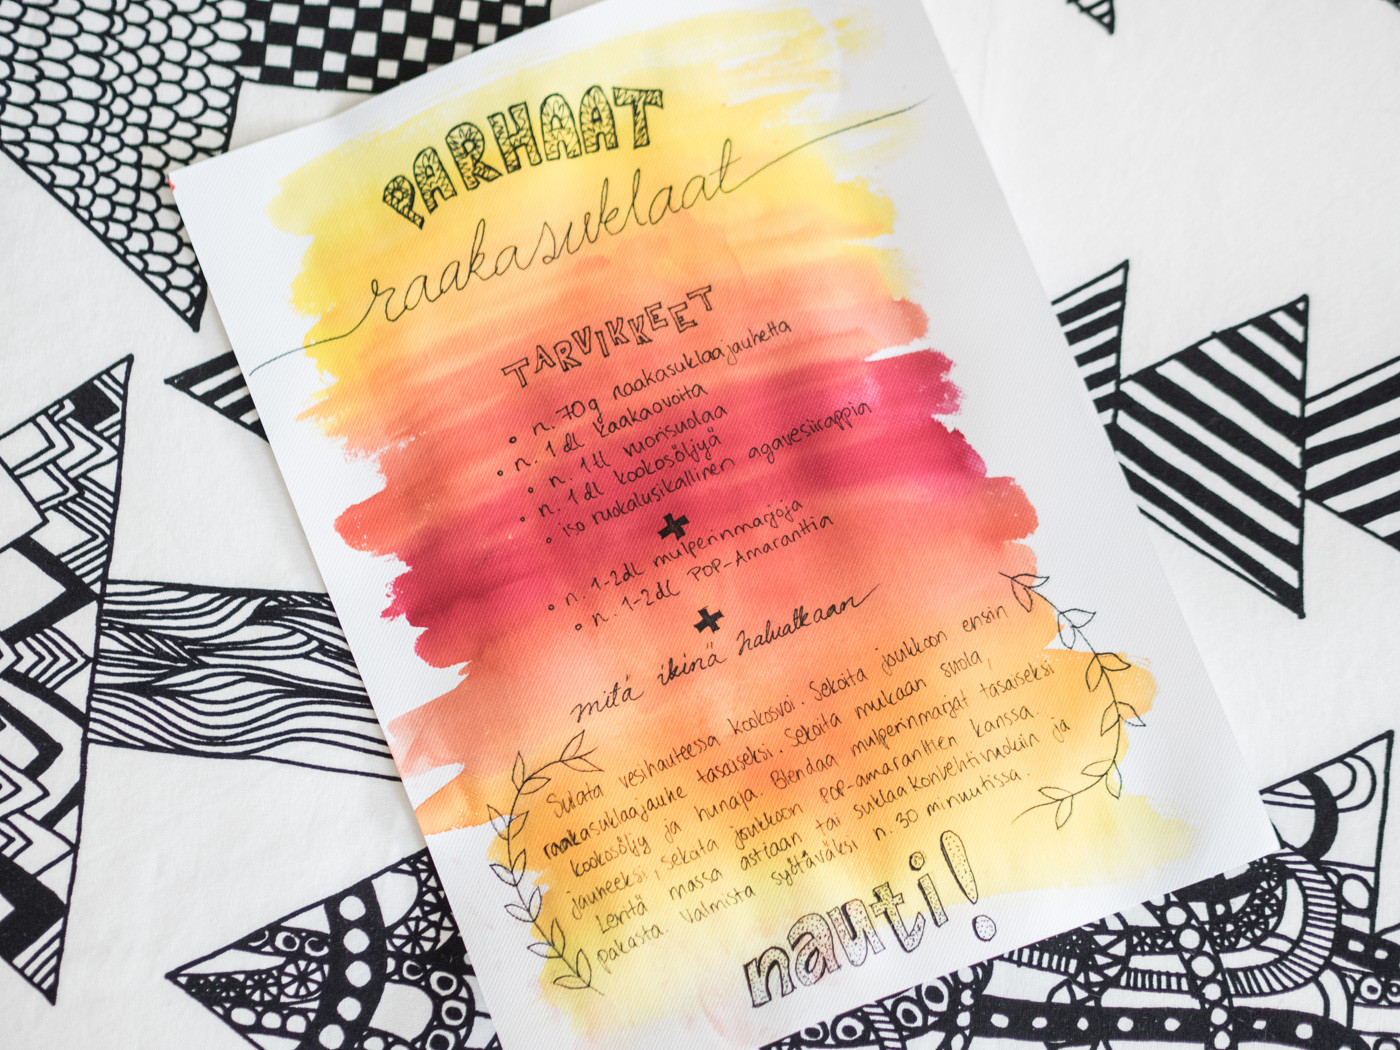 PARHAAT
raakasuklaat
TARVIKKEET
° n. 70g raakasuklaajauhetta
° n. 1 dl kaakaovoita
° n. 1 tl vuorisuolaa
° n. 1 dl kookosöljyä
° iso ruokalusikallinen agavesiirappia
+
° n. 1-2dl mulperinmarjoja
° n. 1-2dl POP-Amaranttia
+
mitä ikinä haluatkaan
Sulata vesihauteessa kookosvoi. Sekoita joukkoon ensin
raakasuklaajauhe tasaiseksi. Sekoita mukaan suola,
kookosöljy ja hunaja. Blendaa mulperinmarjat tasaiseksi
jauheeksi, sekoita joukkoon POP-amarantten kanssa.
Levitä massa astiaan tai suklaakonvehtivuokiin ja
pakasta. Valmista syötäväksi n. 30 minuutissa.
nauti!